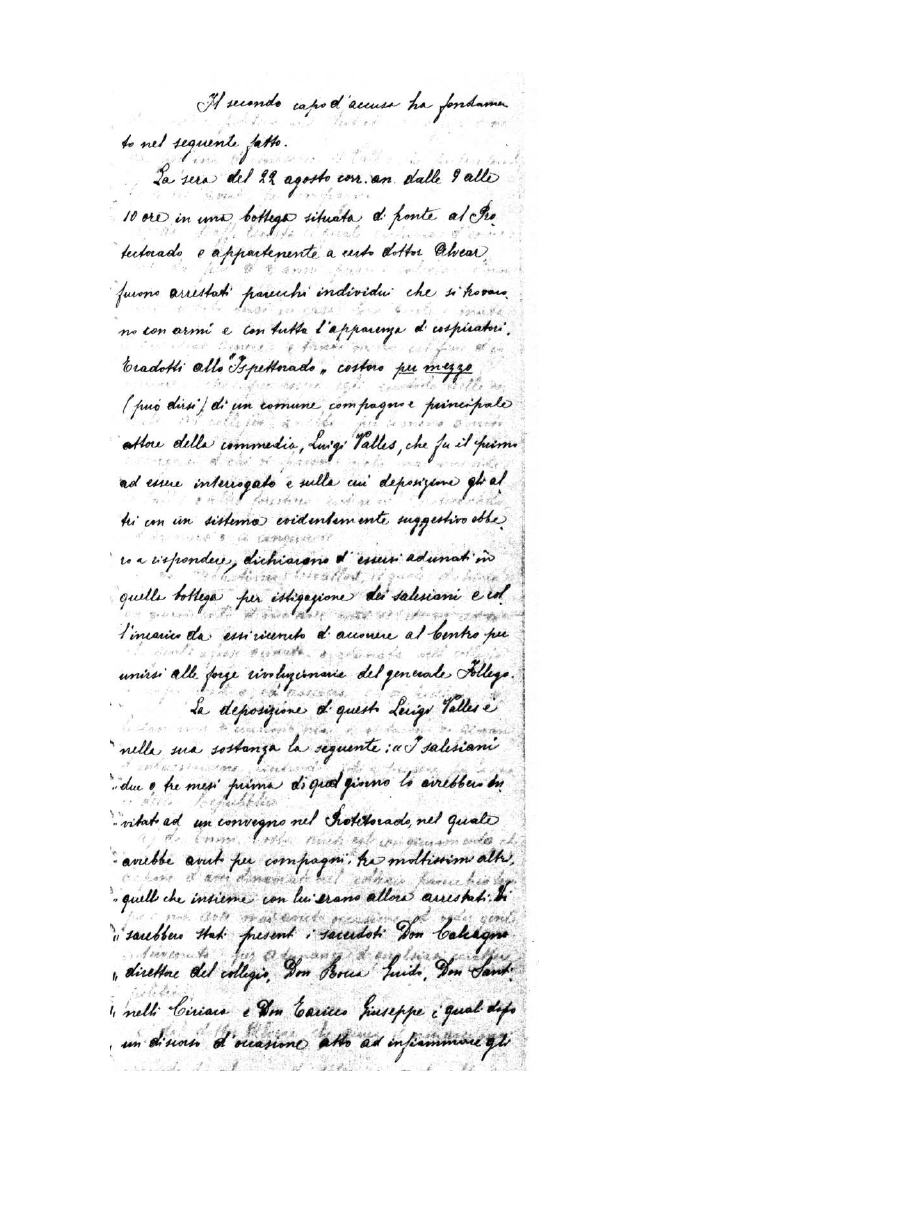 Il secondo capo d'accusa ha fondamen
to nel seguente fatto.
La sera del 22 agosto corr. an. dalle 9 alle
10 ore in una bottega situata di fronte al Pro
tectorado e appartenente a certo dottor Alvear,
furono arrestati parecchi individui che si trovaro
no con armi e con tutta l'apparenza di cospiratori.
Tradotti allo "Ispettorado" costoro per mezzo
(può dirsi) di un comune compagno e principale
attore della commedia, Luigi Valles, che fu il primo
ad essere interrogato e sulla cui deposizione gli al
tri con un sistema evidentemente suggestivo ebbe
ro a rispondere, dichiarano d'essersi adunati in
quella bottega per istigazione dei salesiani e col
l'incarico da essi ricevuto di accorrere al Centro per
unirsi alle forze rivoluzionarie del generale Follego.
La deposizione di questo Luigi Valles è
nella sua sostanza la seguente: "I salesiani
" due o tre mesi prima di quel giorno lo avrebbero in
" vitato ad un convegno nel Protettorado, nel quale
" avrebbe avuti per compagni, tra moltissimi altri,
" quelli che insieme con lui erano allora arrestati. Vi
" sarebbero stati presenti i sacerdoti Don Calcagno
" direttore del collegio, Don Bocca Guido, Don Santi
" nelli Ciriaco e Don Enrico Giuseppe i quali dopo
" un discorso d'occasione atto ad infiammare gli